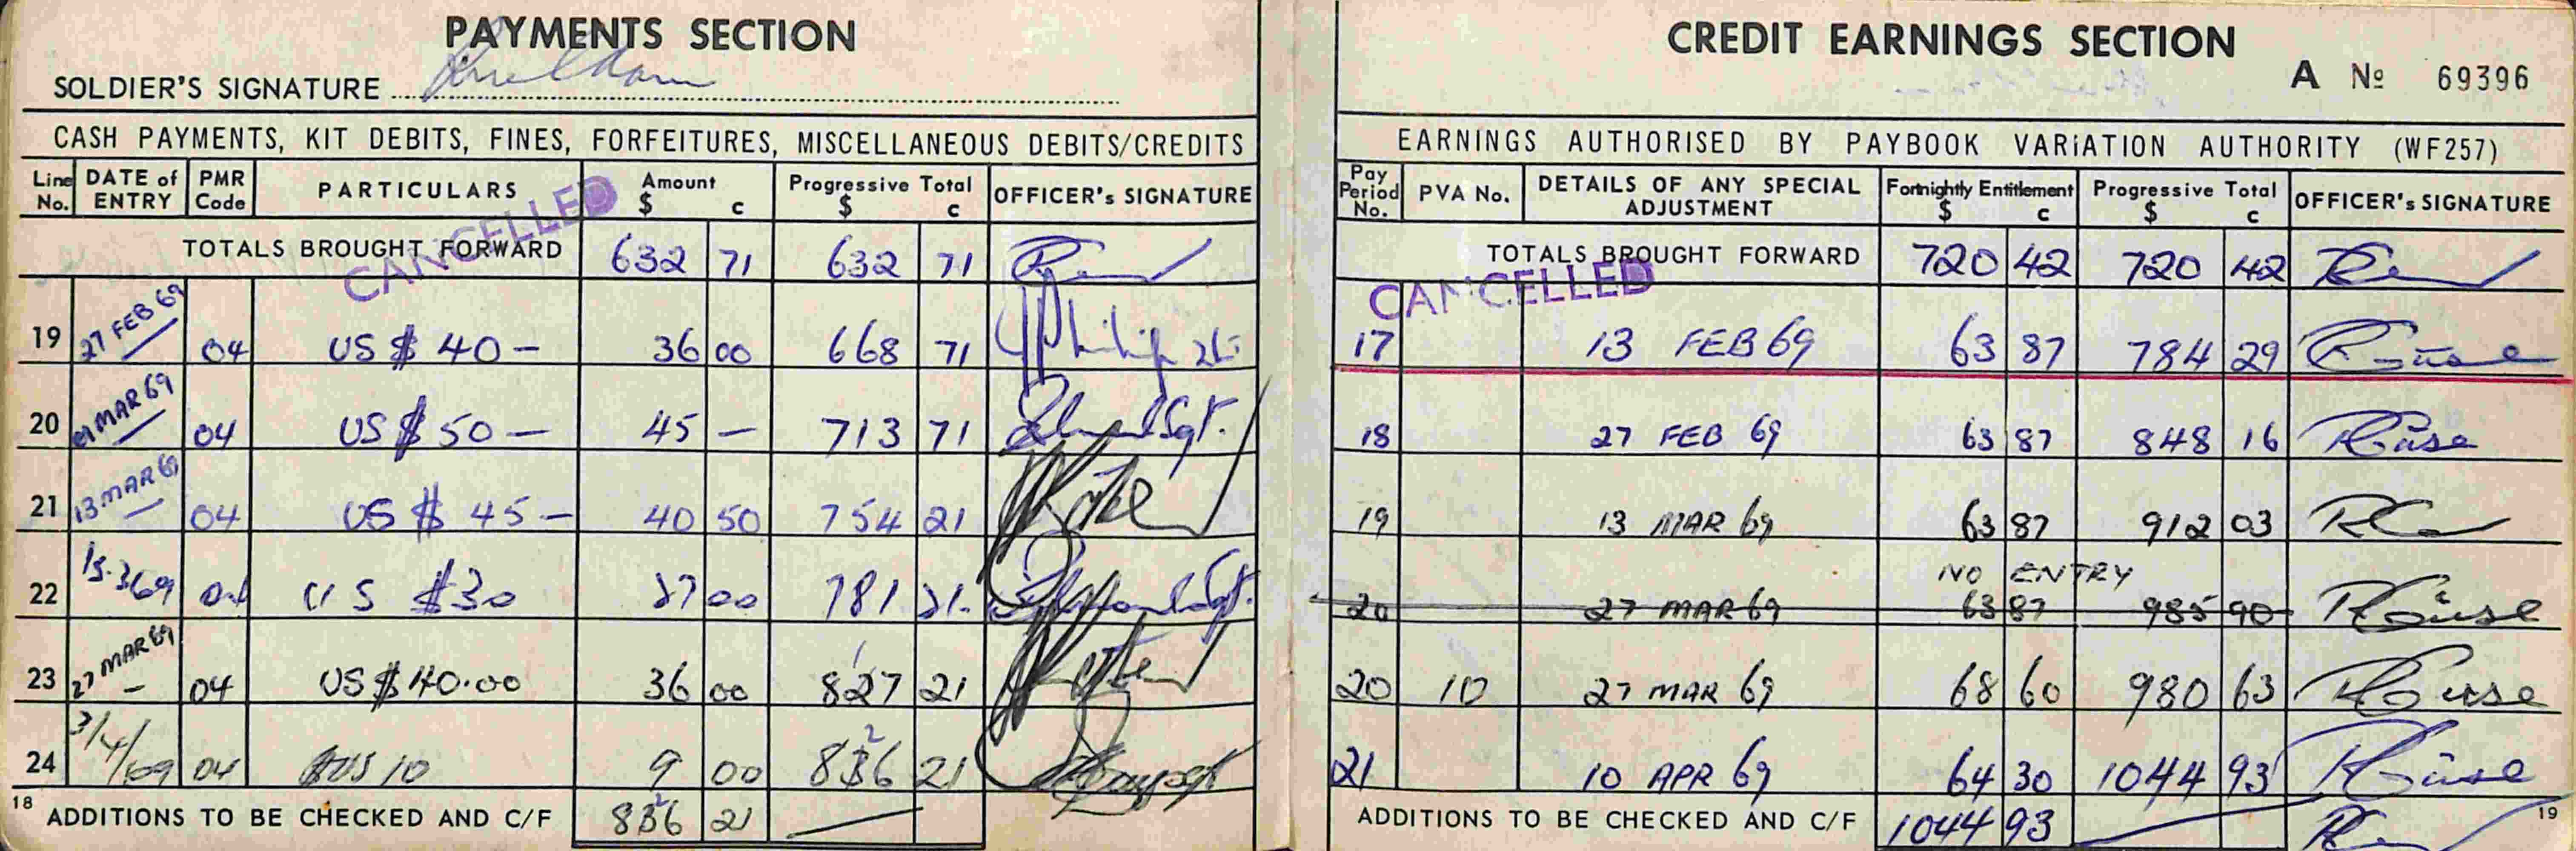 PAYMENTS SECTION
SOLDIER'S SIGNATURE
CASH PAYMENTS, KIT DEBITS, FINES, FORFEITURES, MISCELLANEOUS DEBITS/CREDITS
Line No. DATE of ENTRY PMR Code PARTICULARS Amount $ c Progressive Total $ c OFFICER's SIGNATURE
CANCELLED
TOTALS BROUGHT FORWARD 632 71 632 71
19 27 FEB 69 04 US $ 40 — 36 00 668 71
20 MAR 69 04 US $ 50 — 45 — 713 71 Sgt.
21 13 MAR 69 04 US $ 45 — 40 50 754 21
22 15.3.69 04 US $30 27 00 781 21
23 27 MAR 69 — 04 US $ 40.00 36 00 827 21
24 3/4/69 04 $US 10 9 00 836 21
18 ADDITIONS TO BE CHECKED AND C/F 836 21
CREDIT EARNINGS SECTION
A Nº 69396
EARNINGS AUTHORISED BY PAYBOOK VARIATION AUTHORITY (WF257)
Pay Period No. PVA No. DETAILS OF ANY SPECIAL ADJUSTMENT Fortnightly Entitlement $ c Progressive Total $ c OFFICER's SIGNATURE
TOTALS BROUGHT FORWARD 720 42 720 42
CANCELLED
17 13 FEB 69 63 87 784 29
18 27 FEB 69 63 87 848 16
19 13 MAR 69 63 87 912 03
NO ENTRY
20 27 MAR 69 63 87 985 90
20 10 27 MAR 69 68 60 980 63
21 10 APR 69 64 30 1044 93
ADDITIONS TO BE CHECKED AND C/F 1044 93
19